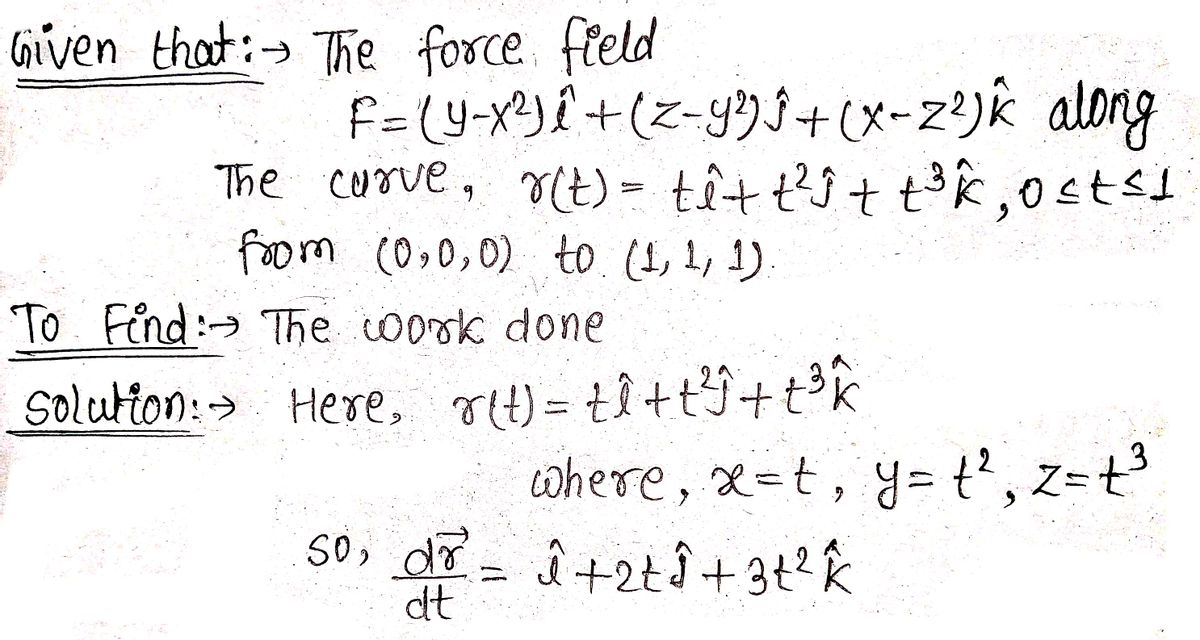 Given that:→ The force field
F=(y-x²)î+(z-y²)ĵ+(x-z²)k̂ along
The curve, r(t)= tî+ t²ĵ + t³k̂, 0≤t≤1
from (0,0,0) to (1,1,1).
To Find:→ The work done
Solution:→ Here, r(t)= tî+t²ĵ+t³k̂
where, x=t, y=t², z=t³
So, dr⃗/dt = î+2tĵ+3t²k̂